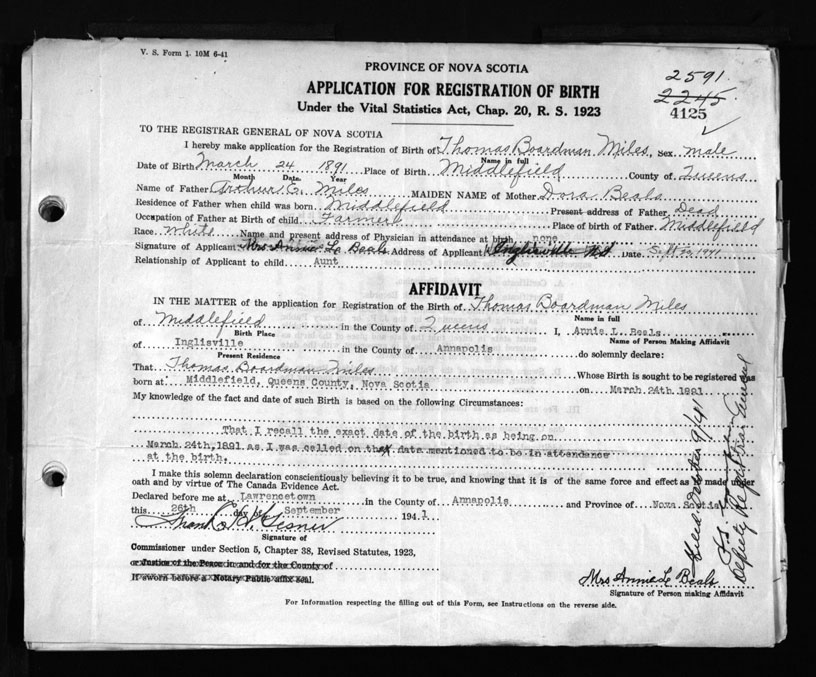 V. S. Form 1. 10M 6-41
PROVINCE OF NOVA SCOTIA
2591.
APPLICATION FOR REGISTRATION OF BIRTH
2245.
Under the Vital Statistics Act, Chap. 20, R. S. 1923
4125
TO THE REGISTRAR GENERAL OF NOVA SCOTIA
I hereby make application for the Registration of Birth of Thomas Boardman Miles, Sex male
Name in full
Date of Birth March 24 1891 Place of Birth Middlefield County of Queens
Month Date. Year
Name of Father Arthur E. Miles MAIDEN NAME of Mother Dora Beals
Residence of Father when child was born Middlefield Present address of Father Dead
Occupation of Father at Birth of child Farmer Place of birth of Father Middlefield
Race White Name and present address of Physician in attendance at birth none
Signature of Applicant Mrs Annie L. Beals Address of Applicant Inglisville N.S. Date Sept 1941
Relationship of Applicant to child Aunt
AFFIDAVIT
IN THE MATTER of the application for Registration of the Birth of Thomas Boardman Miles
Name in full
of Middlefield in the County of Queens I, Annie L. Beals
Birth Place Name of Person Making Affidavit
of Inglisville in the County of Annapolis do solemnly declare:
Present Residence
That Thomas Boardman Miles Whose Birth is sought to be registered was
born at Middlefield, Queens County, Nova Scotia on March 24th 1891
My knowledge of the fact and date of such Birth is based on the following Circumstances:
That I recall the exact date of the birth as being on
March 24th, 1891 as I was called on the date mentioned to be in attendance
at the birth.
I make this solemn declaration conscientiously believing it to be true, and knowing that it is of the same force and effect as if made under
oath and by virtue of The Canada Evidence Act.
Declared before me at Lawrencetown in the County of Annapolis and Province of Nova Scotia
this 26th day of September 1941
Signature of
Commissioner under Section 5, Chapter 38, Revised Statutes, 1923,
or Justice of the Peace in and for the County of
If sworn before a Notary Public affix seal.
Mrs Annie L. Beals
Signature of Person making Affidavit
For Information respecting the filling out of this Form, see Instructions on the reverse side.
Filed October 9/41
Deputy Registrar General